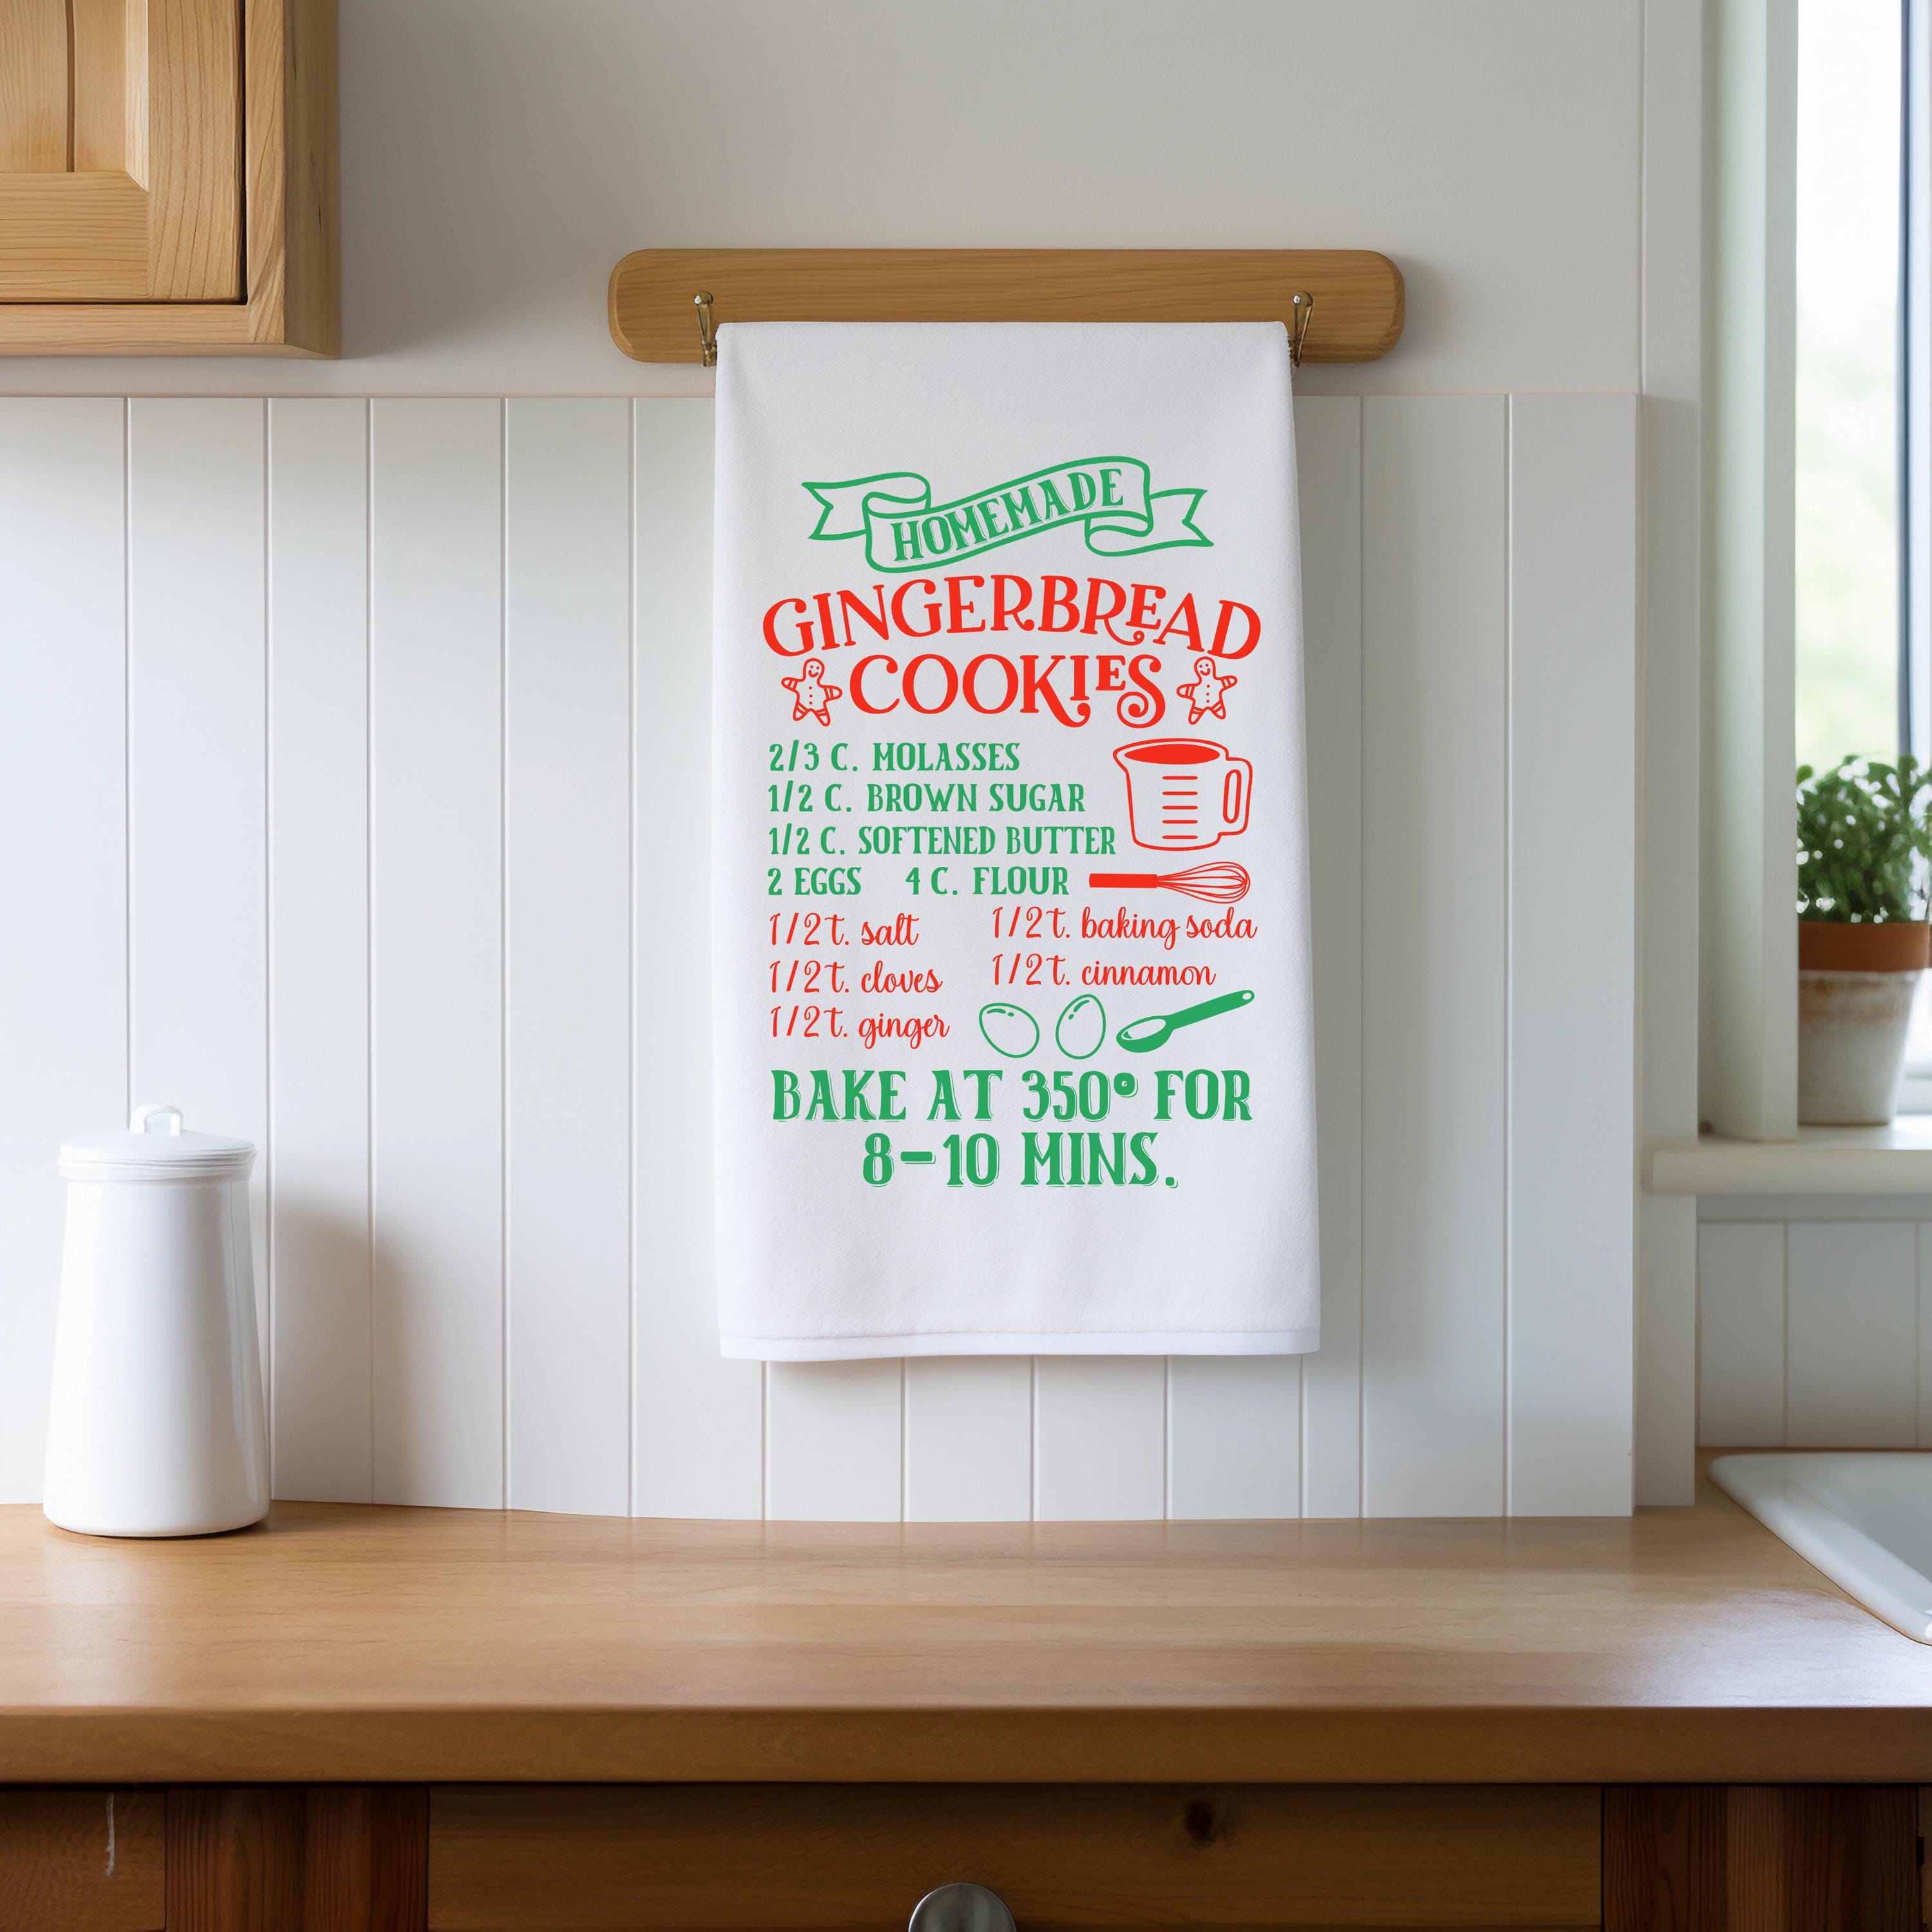 HOMEMADE
GINGERBREAD
COOKIES
2/3 C. MOLASSES
1/2 C. BROWN SUGAR
1/2 C. SOFTENED BUTTER
2 EGGS 4 C. FLOUR
1/2 t. salt 1/2 t. baking soda
1/2 t. cloves 1/2 t. cinnamon
1/2 t. ginger
BAKE AT 350° FOR
8-10 MINS.